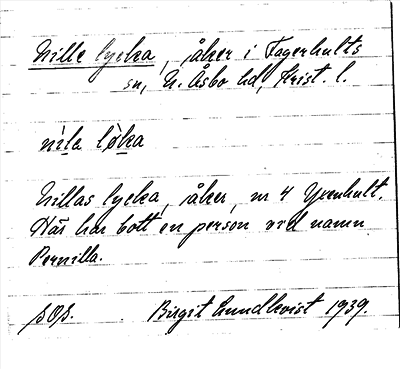 Nille lycka, åker i Fagerhults
sn, N. Åsbo hd, Krist. l.
nìla lỳka
Nillas lycka, åker, nr 4 Yxenhult.
Här har bott en person vid namn
Pernilla.
Birgit Lundkvist 1939.